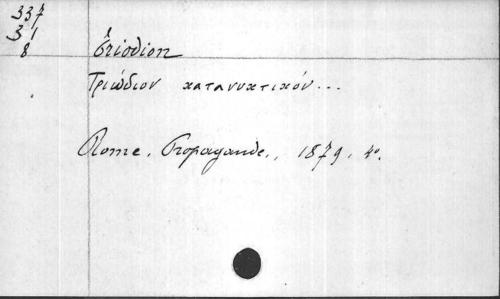 337
31
8
Triodion
Τριώδιον κατανυκτικόν...
Rome, Propagande, 1879, 4º.